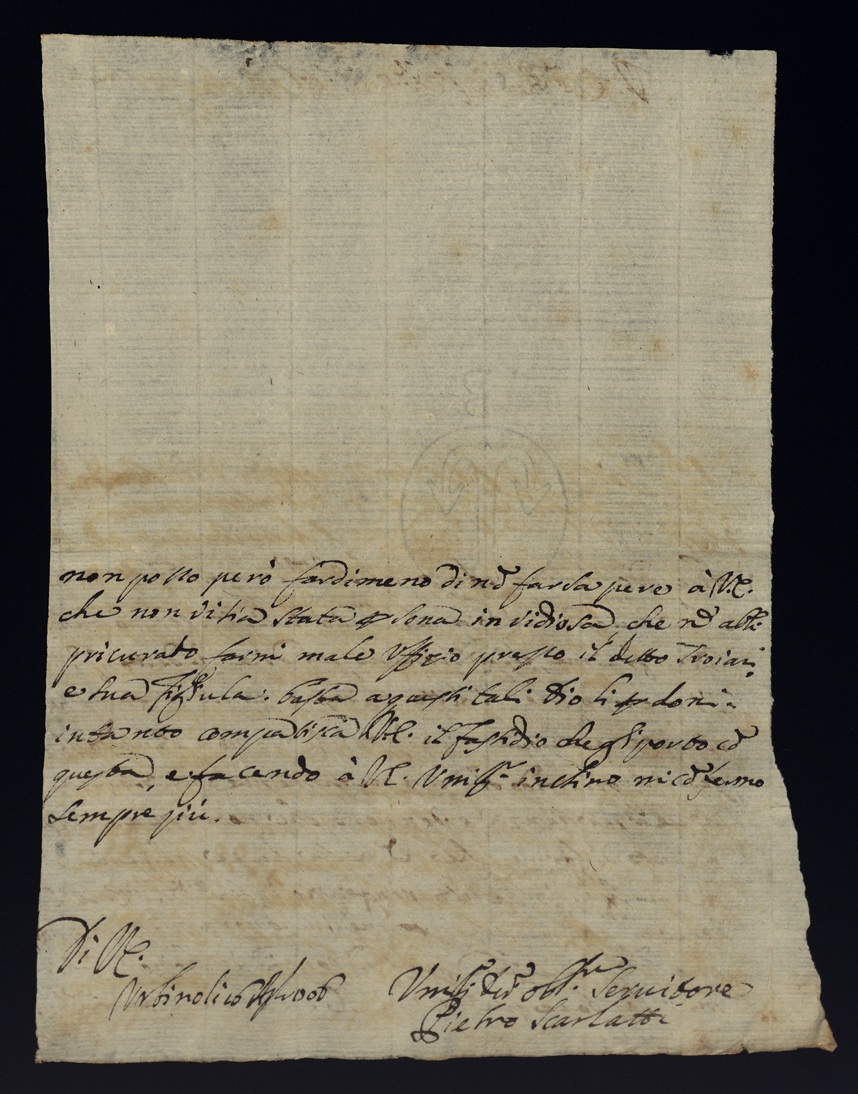 non posso però far di meno di nõ far sapere à V.E.
che non vi sia stata ꝑsona invidiosa, che nõ abbi
procurato farmi male Uffizio presso il detto Troiani
e sua basta a questi tali Dio li ꝑdoni.
intanto compatisca V.E. il fastidio che gli porto cõ
questa, e facendo à V.E. Umiss.º inchino mi cõfermo
sempre più.
Di V.E.
Urbino li 16
Umiliss. Dev. obb.mo Servitore
Pietro Scarlatti
B